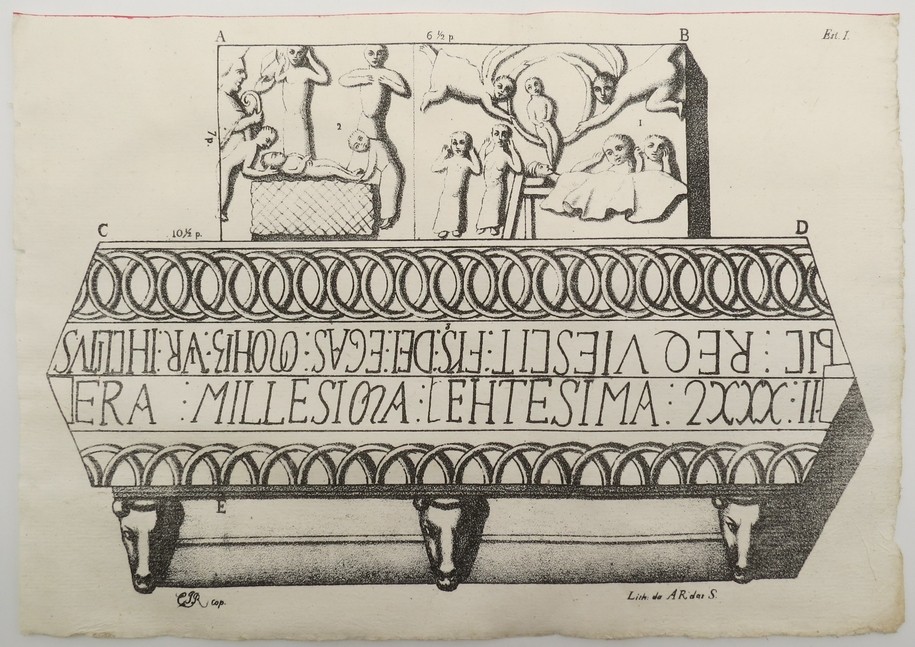 A 6 ½ p. B Est. 1.
7 p. 2 1
C 10 ½ p. D
HIC : REQVIESCIT : FIS : DEI : EGAS : MONIZ : VR : INCLITVS
ERA : MILLESIMA : CENTESIMA : 2XXX : II
E
cop. Lith. de A R. das S.